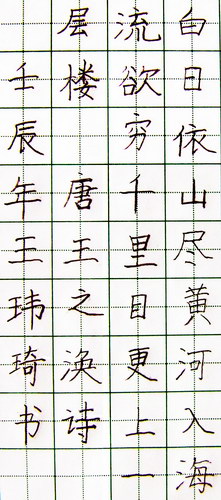 白日依山尽黄河入海
流欲穷千里目更上一
层楼 唐王之涣诗
壬辰年王玮琦书